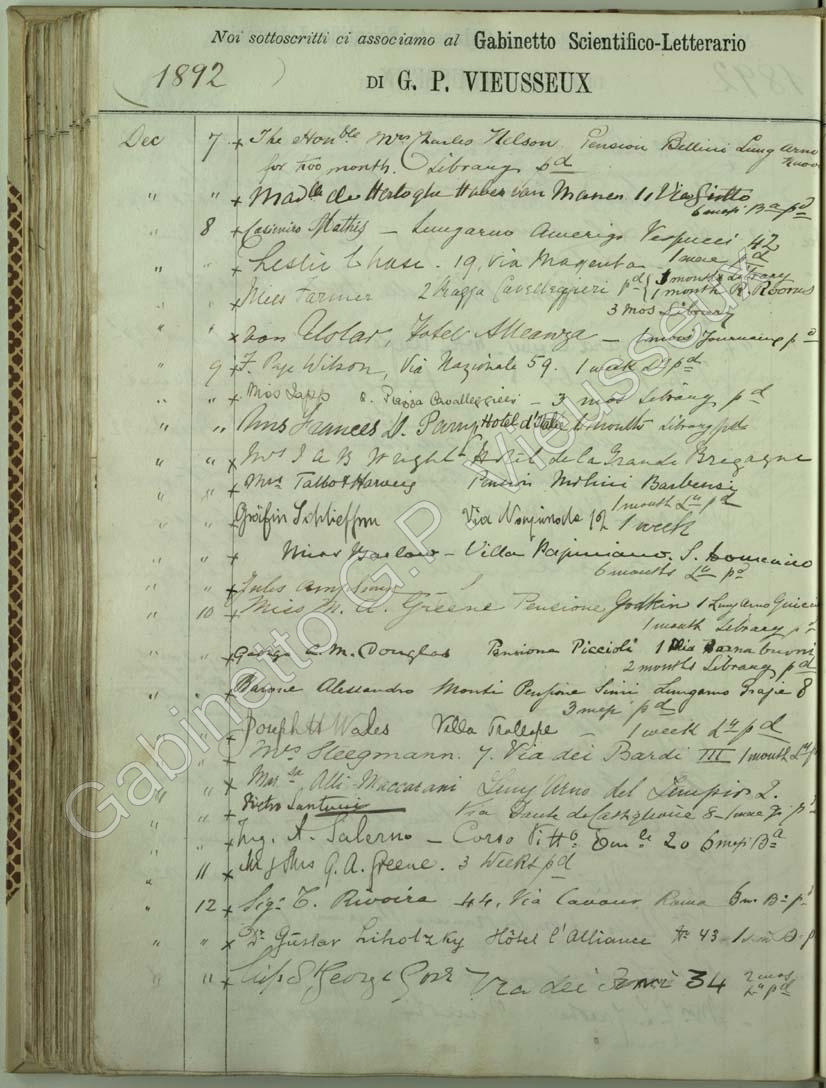 Noi sottoscritti ci associamo al Gabinetto Scientifico-Letterario
1892
DI G. P. VIEUSSEUX
Dec 7 x The Honble Mrs Charles Nelson Pension Bellini Lung Arno
Nuovo
for two month. Library pd
" " x Madlle de Hertoghe Haver van Manen 11 Via Giotto
6 mesi Ba pd
" 8 x Casimiro Mathis – Lungarno Amerigo Vespucci 42
1 mese pd
" " x Leslie Chase. 19, Via Magenta
x Miss Farmer 2 Piazza Cavalleggieri pd { 3 months Library
1 month R. Rooms
3 mos Library
" " x von Uslar, Hotel Alleanza – Journaux pd
" 9 x F. Page Wilson, Via Nazionale 59. 1 week Ly pd
" " x Miss Japp Piazza Cavalleggieri – 3 mos Library pd
" " x Mrs Frances Hotel d'Italie 6 months Library pd
" " x Mrs J A B Wright Hôtel de la Grande Bretagne
" " x Mrs Talbot Harvey Pension Molini Barbensi
1 month Ly pd
" " x Gräfin Schlieffen Via 1 week
" " x Miss Barlow – Villa Papiniano. S. Domenico
6 months Ly pd
" " x Jules
" 10 x Miss M. A. Greene Pensione Godkin 1 Lung Arno Guicci
1 month Library pd
" " x George A. M. Douglas Pensione Piccioli 1 Via Tornabuoni
2 months Library pd
" " x Barone Alessandro Monti Pensione Simi Lungarno Grazie 8
3 mesi pd
" " x Joseph H Wades Villa Trollope – 1 week Ly pd
" " x Mrs Steegmann. 7. Via dei Bardi III 1 month Ly
" " x Marsa Alli-Maccarani Lung'Arno del Tempio 2.
" " x Pietro Santini Via Dante da Castiglione 8 – 1 mese
" " x Ing. A. Salerno – Corso Vittо Emle 20 6 mesi Ba
" 11 x Mr & Mrs G. A. Greene. 3 Weeks pd
" 12 x Sigr T. Rivoira 44, Via Cavour Roma 3m. Ba pd
" " x Dr Gustav Liholzky Hôtel l'Alliance No 43 – 1
" " x George Via dei 34 2 mos
Ly pd
Gabinetto G.P. Vieusseux